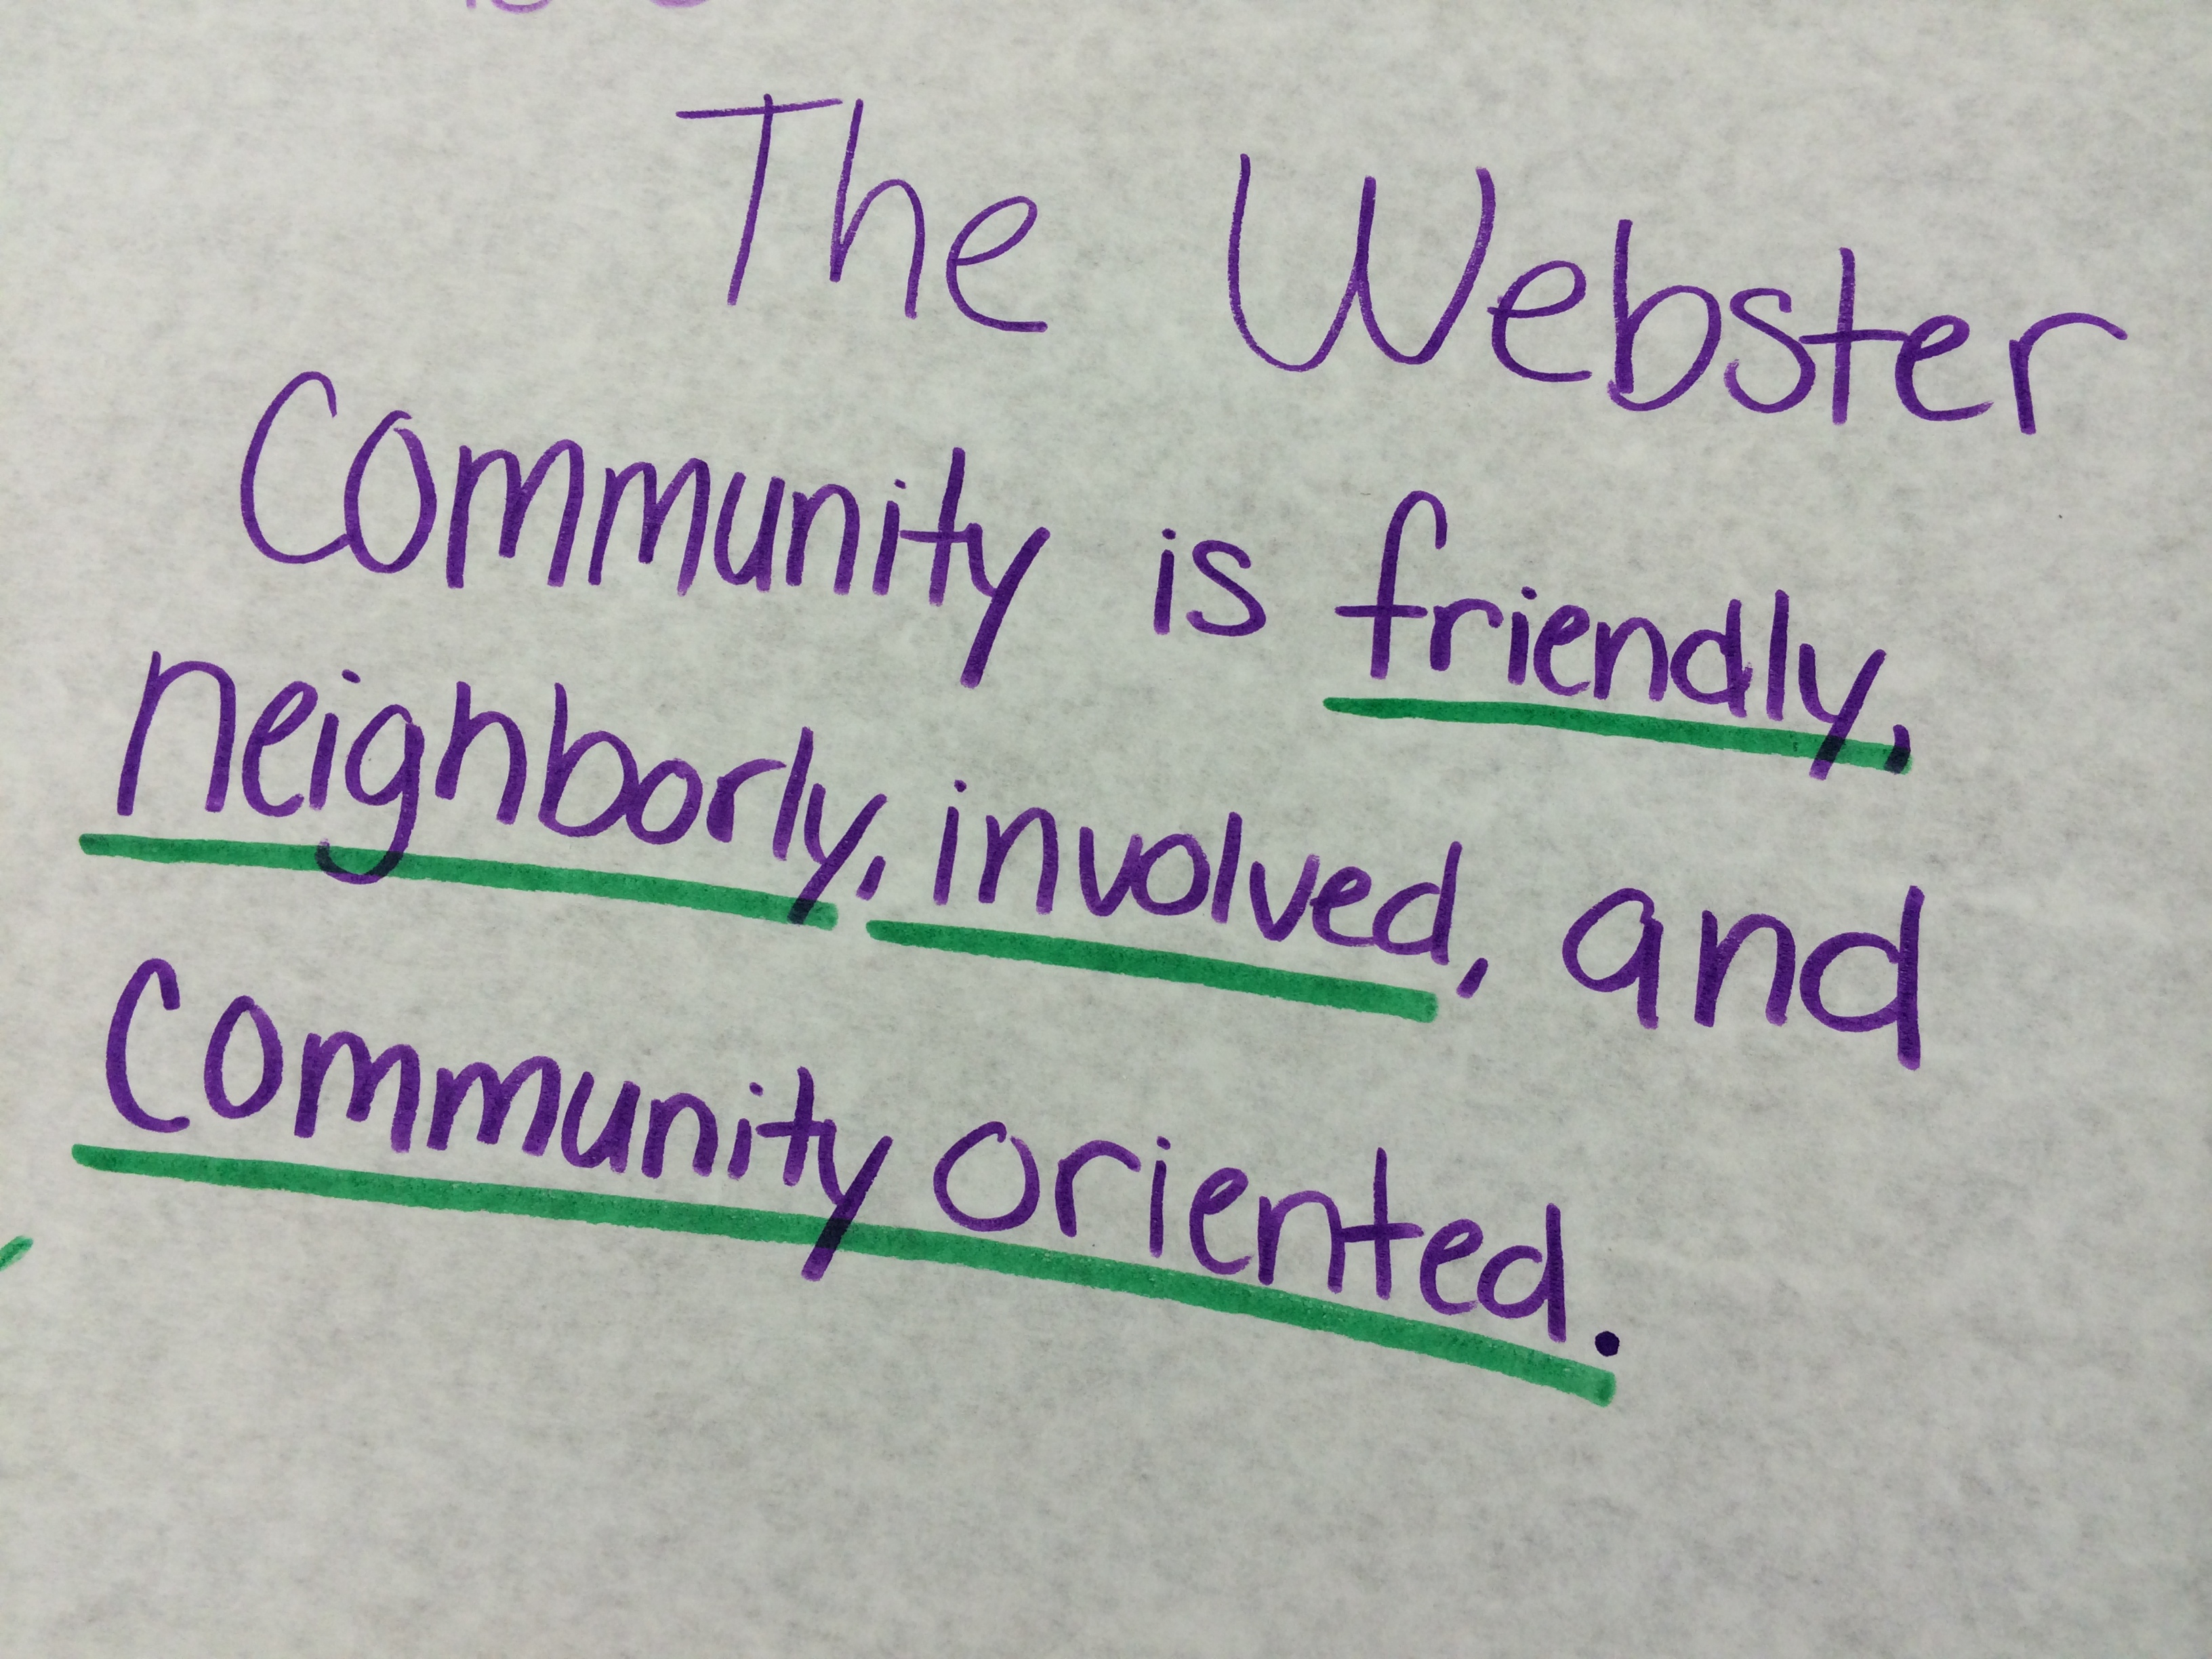 The Webster
Community is friendly,
neighborly, involved, and
Community oriented.